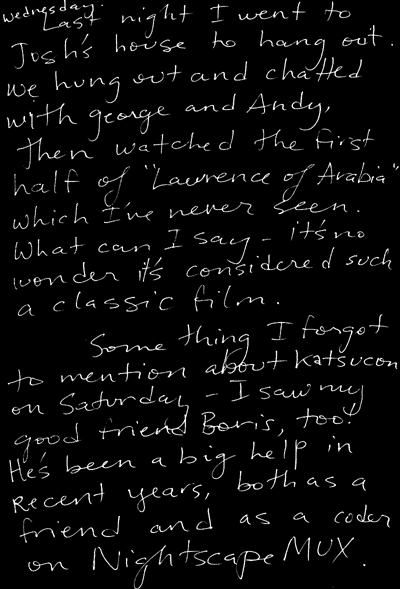 Wednesday.
Last night I went to
Josh's house to hang out.
We hung out and chatted
with george and Andy,
Then watched the first
half of "Lawrence of Arabia"
which I've never seen.
What can I say - it's no
wonder it's considered such
a classic film.
Some thing I forgot
to mention about Katsucon
on Saturday - I saw my
good friend Boris, too!
He's been a big help in
Recent years, both as a
friend and as a coder
on Nightscape MUX.